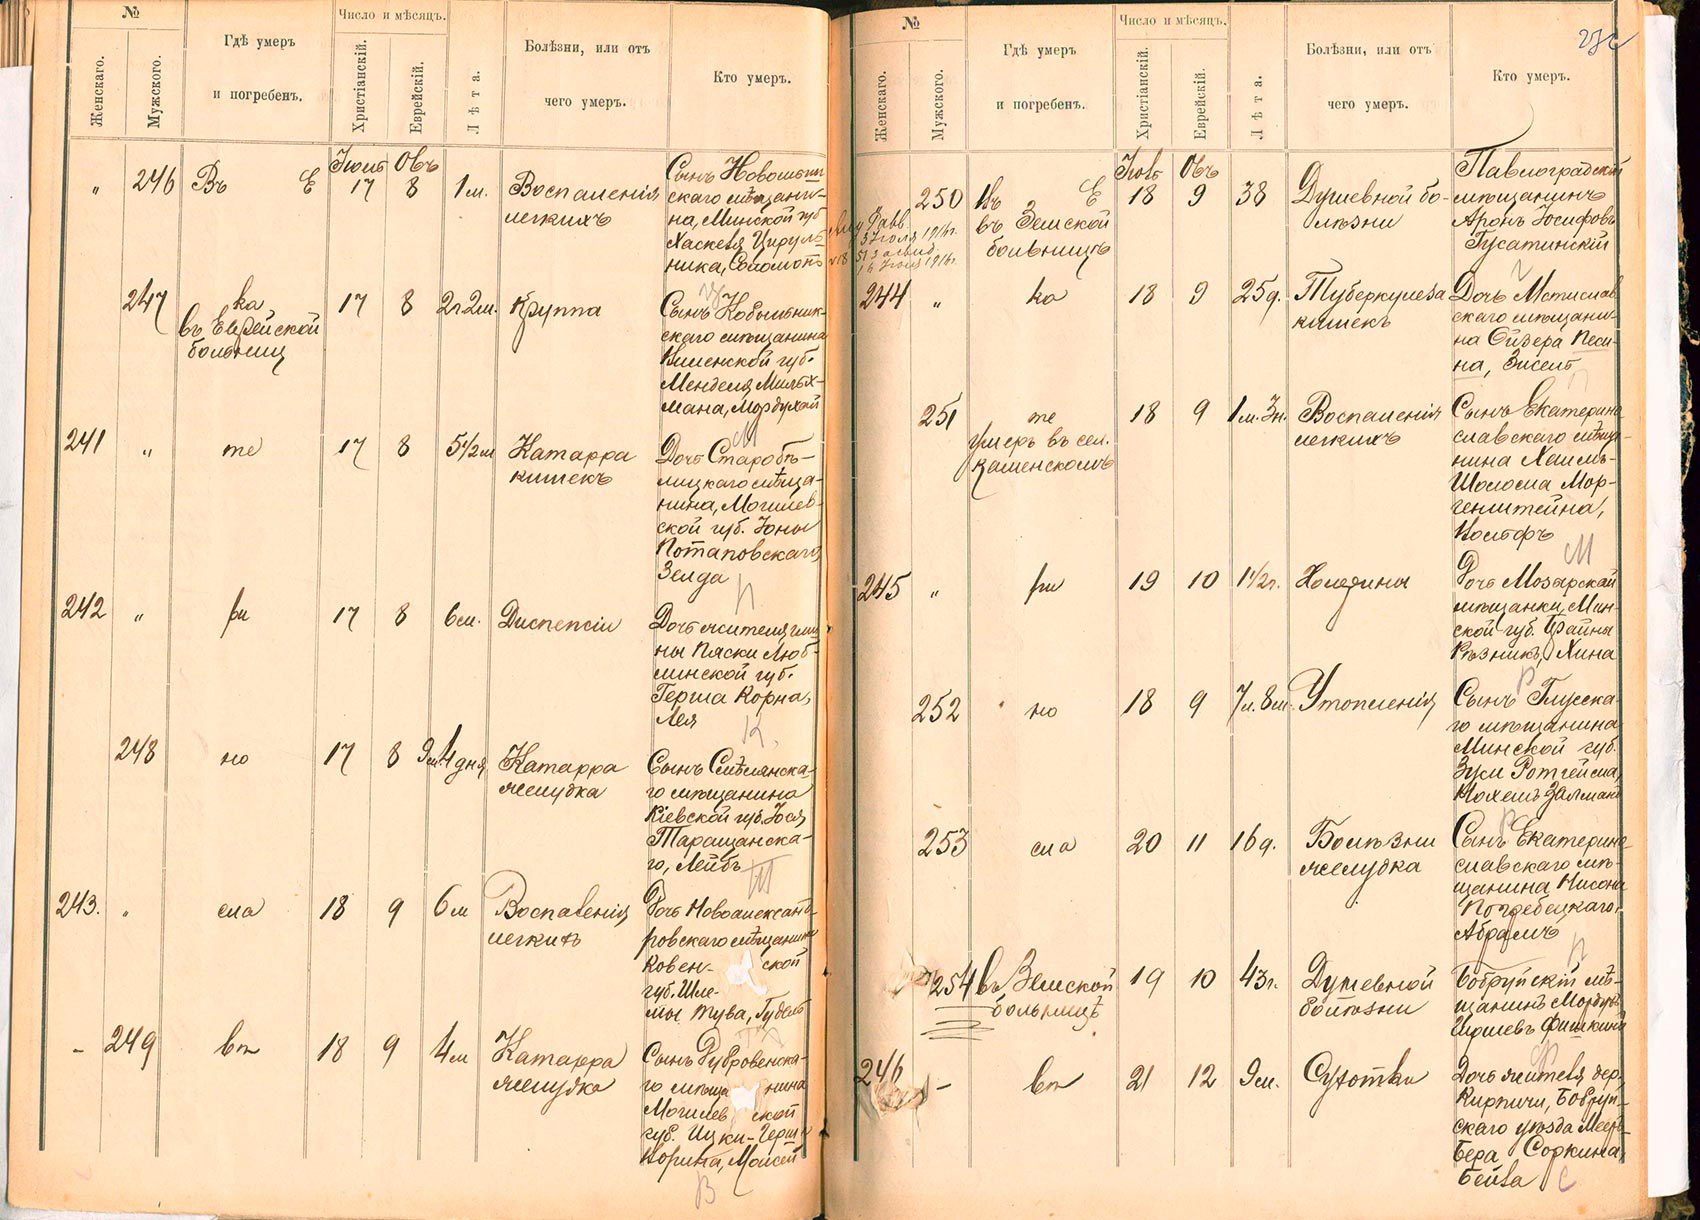 №
Число и мѣсяцъ.
Женскаго.
Мужского.
Гдѣ умеръ
и погребенъ.
Христіанскій.
Еврейскій.
Лѣта.
Болѣзни, или отъ
чего умеръ.
Кто умеръ.
Іюль Овъ
" 246 Въ Е 17 8 1 м. Воспаленія
легкихъ
скаго мѣщани-
на, Минской губ
Хаскеля Цируль
ника, Соломонъ
247 ка
въ Еврейской
больниц
17 8 2г.2м. Круппа
Сынъ Кобыльник-
скаго мѣщанина
Виленской губ.
Менделя Мильх-
мана, Мордухай
241 " те 17 8 5 1/2 м Катарра
кишекъ
Дочь Старобѣ-
лицкаго мѣща-
нина, Могилев-
ской губ. Іоны
Потаповскаго,
Зелда
242 " ри 17 8 6 м. Диспепсіи
Дочь жителя гми
ны Пяски Люб-
линской губ.
Герша Корна,
Лея
248 но 17 8 9м 4 дня Катарра
желудка
Сынъ Смѣлянска-
го мѣщанина
Кіевской губ. Іося
Таращанска-
го, Лейбъ
243. " сла 18 9 6 м Воспаленія
легкихъ
Дочь Новоалександ-
ровскаго мѣщанина
Ковен- ской
губ. Шле-
мы Тува, Гудесъ
- 249 вт 18 9 4 м Катарра
желудка
Сынъ Дубровенска-
го мѣща нина
Могилев ской
губ. Ицки-Герша
Корина, Мойсей
№
Число и мѣсяцъ.
Женскаго.
Мужского.
Гдѣ умеръ
и погребенъ.
Христіанскій.
Еврейскій.
Лѣта.
Болѣзни, или отъ
чего умеръ.
Кто умеръ.
Іюль Овъ
250 Въ Е 18 9 38 Душевной бо-
лѣзни
въ Земской
больницѣ
Павлоградскій
мѣщанинъ
Аронъ Іосифовъ
Гусатинскій
5 Іюля 1916г.
244 " ка 18 9 25д. Туберкулеза
кишекъ
Дочь Мстислав
скаго мѣщани-
на Ойзера Песи-
на, Зисель
251 те
умеръ въ сел.
Каменскомъ
18 9 1 м. 3н. Воспаленія
легкихъ
Сынъ Екатерино
славскаго мѣща-
нина Хаимъ-
Шолома Мор-
генштейна,
Іосифъ
245 " ри 19 10 1 1/2г. Холерины
Дочь Мозырской
мѣщанки, Мин-
ской губ. Файны
Рѣзникъ, Хина
252 но 18 9 7л. 8м. Утопленія
Сынъ Глусска-
го мѣщанина
Минской губ.
Зуси Ротгейма,
253 сла 20 11 16д. Болѣзни
желудка
Сынъ Екатерино
славскаго мѣ-
щанина Нисона
Погребецкаго,
Абрамъ
254 въ Земской
больницѣ
19 10 43г. Душевной
болѣзни
Бобруйскій мѣ-
щанинъ Мордухъ
Фишкинъ
246 - вт 21 12 9м. Сухотки
Дочь жителя дер.
Кирпичи, Бобруй-
скаго уѣзда Меер-
Бера Соркина,
Бейла